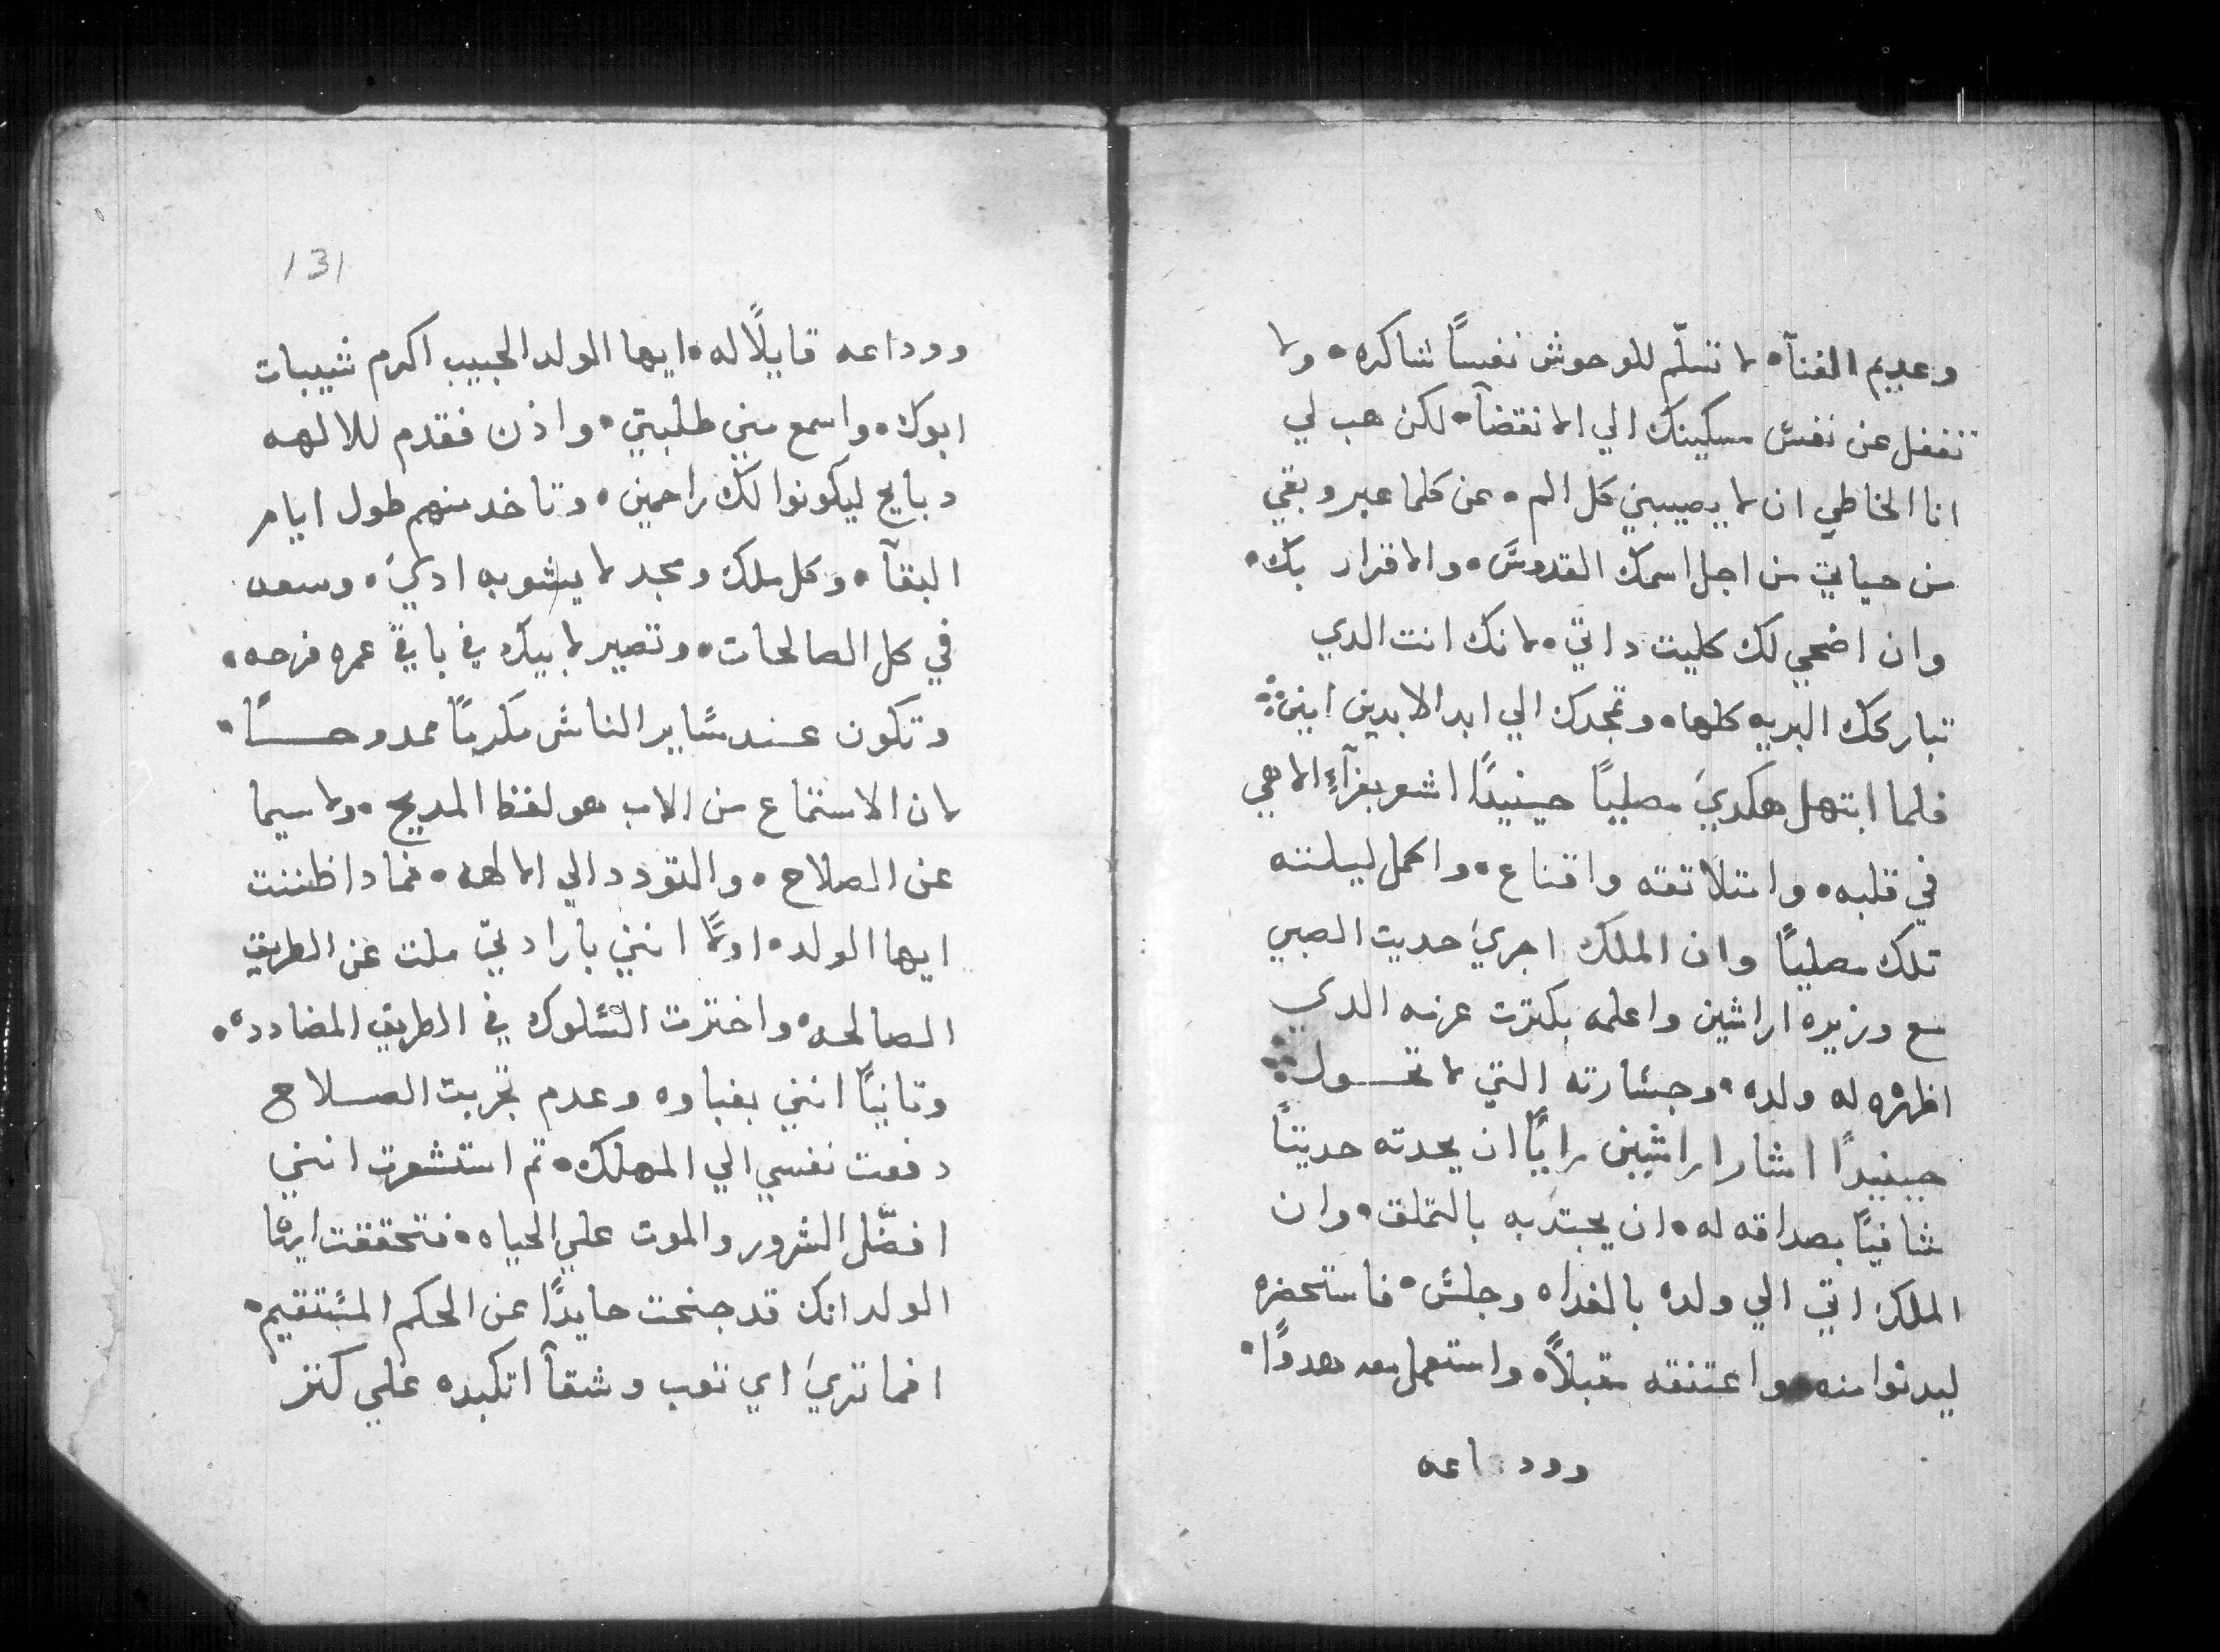 وعديم الفنآ لا تسلّم للوحوش نفسًا شاكره ولا
تغفل عن نفس مسكينك الي الانقضآ لكن هب لي
انا الخاطي ان لا يصيبني كل الم عن كلما عبر وبقي
من حياتي من اجل اسمك القدوس والاقرار بك
وان اضحي لك كليت داتي لانك انت الدي
تباركك البريه كلها وتمجدك الي ابد الابدين امين
فلما ابتهل هكدي مصليًا حينيدًا اشعر بعزآءٍ الاهي
في قلبه وامتلا ثقه واقناع واكمل ليلته
تلك مصليًا وان الملك اجري حديت الصبي
مع وزيره اراشين واعلمه بكترت عزمه الدي
اظهره له ولده وجسارته التي لا تحول
حينيدًا اشار اراشين رايًا ان يحدته حديتًا
شافيًا بصداقه له ان يجتدبه بالتملق وان
الملك اتي الي ولده بالغداه وجلس فاستحضره
ليدنوا منه واعتنقه مقبلاً واستعمل معه هدوًا
ووداعه
131
ووداعه قايلًا له ايها الولد الحبيب اكرم شيبات
ابوك واسمع مني طلبتي واذن فقدم للالهه
دبايح ليكونوا لك راحمين وتاخد منهم طول ايام
البقآ وكل ملك ومجد لا يشوبه ادي وسعه
في كل الصالحات وتصير لابيك في باقي عمره فرحه
وتكون عند ساير الناس مكرمًا ممدوحًا
لان الاستماع من الاب هو لفظ المديح ولاسيما
عن الصلاح والتودد الي الالهه فمادا ظننت
ايها الولد اولًا انني بارادتي ملت عن الطريق
الصالحه واخترت السلوك في الطريق المضادده
وتانيًا انني بغباوه وعدم تجربت الصلاح
دفعت نفسي الي المهلك تم استشعرت انني
افضّل الشرور والموت علي الحياه فتحققت ايها
الولد انك قد جنحت حايدًا عن الحكم المستقيم
افما تري اي تعب وشقآ اتكبده علي كتر